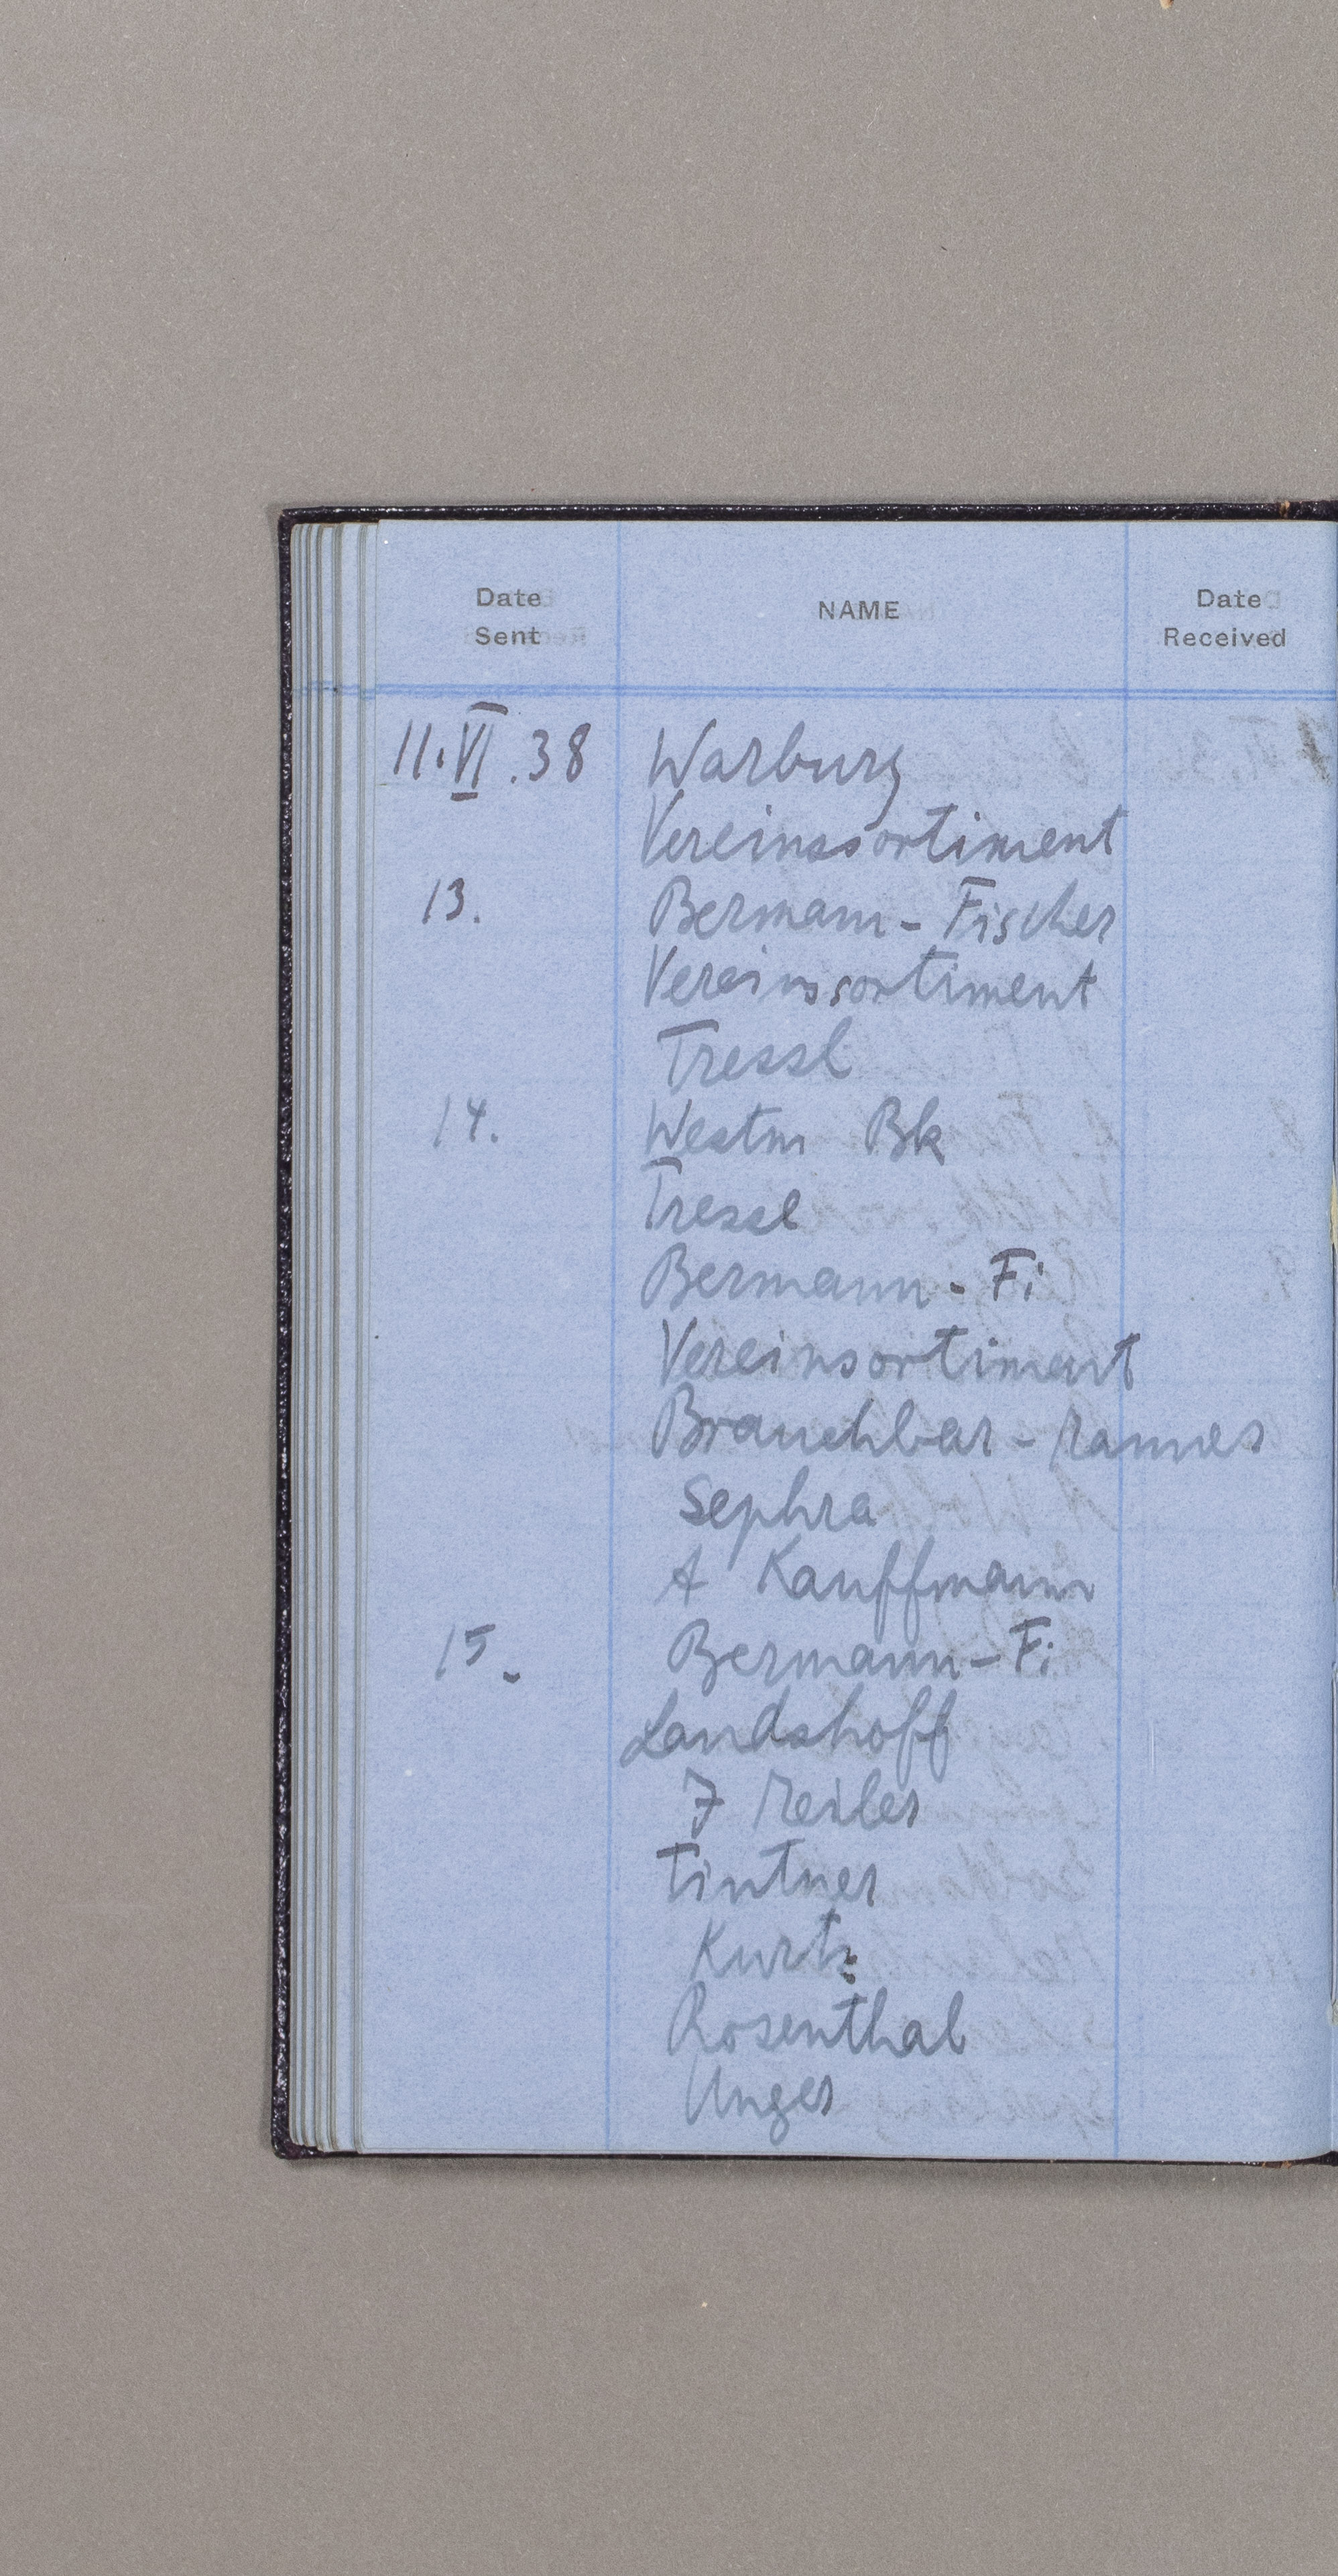 Date Sent NAME Date Received
11.VI.38 Warburg
Vereinssortiment
13. Bermann - Fischer
Vereinssortiment
Tressl
14. Westm Bk
Tressl
Bermann - Fi
Vereinsortiment
Brauchbar -
Sephra
A Kauffmann
15. Bermann - Fi
Landshoff
Tintner
Kurtz
Rosenthal
Unger